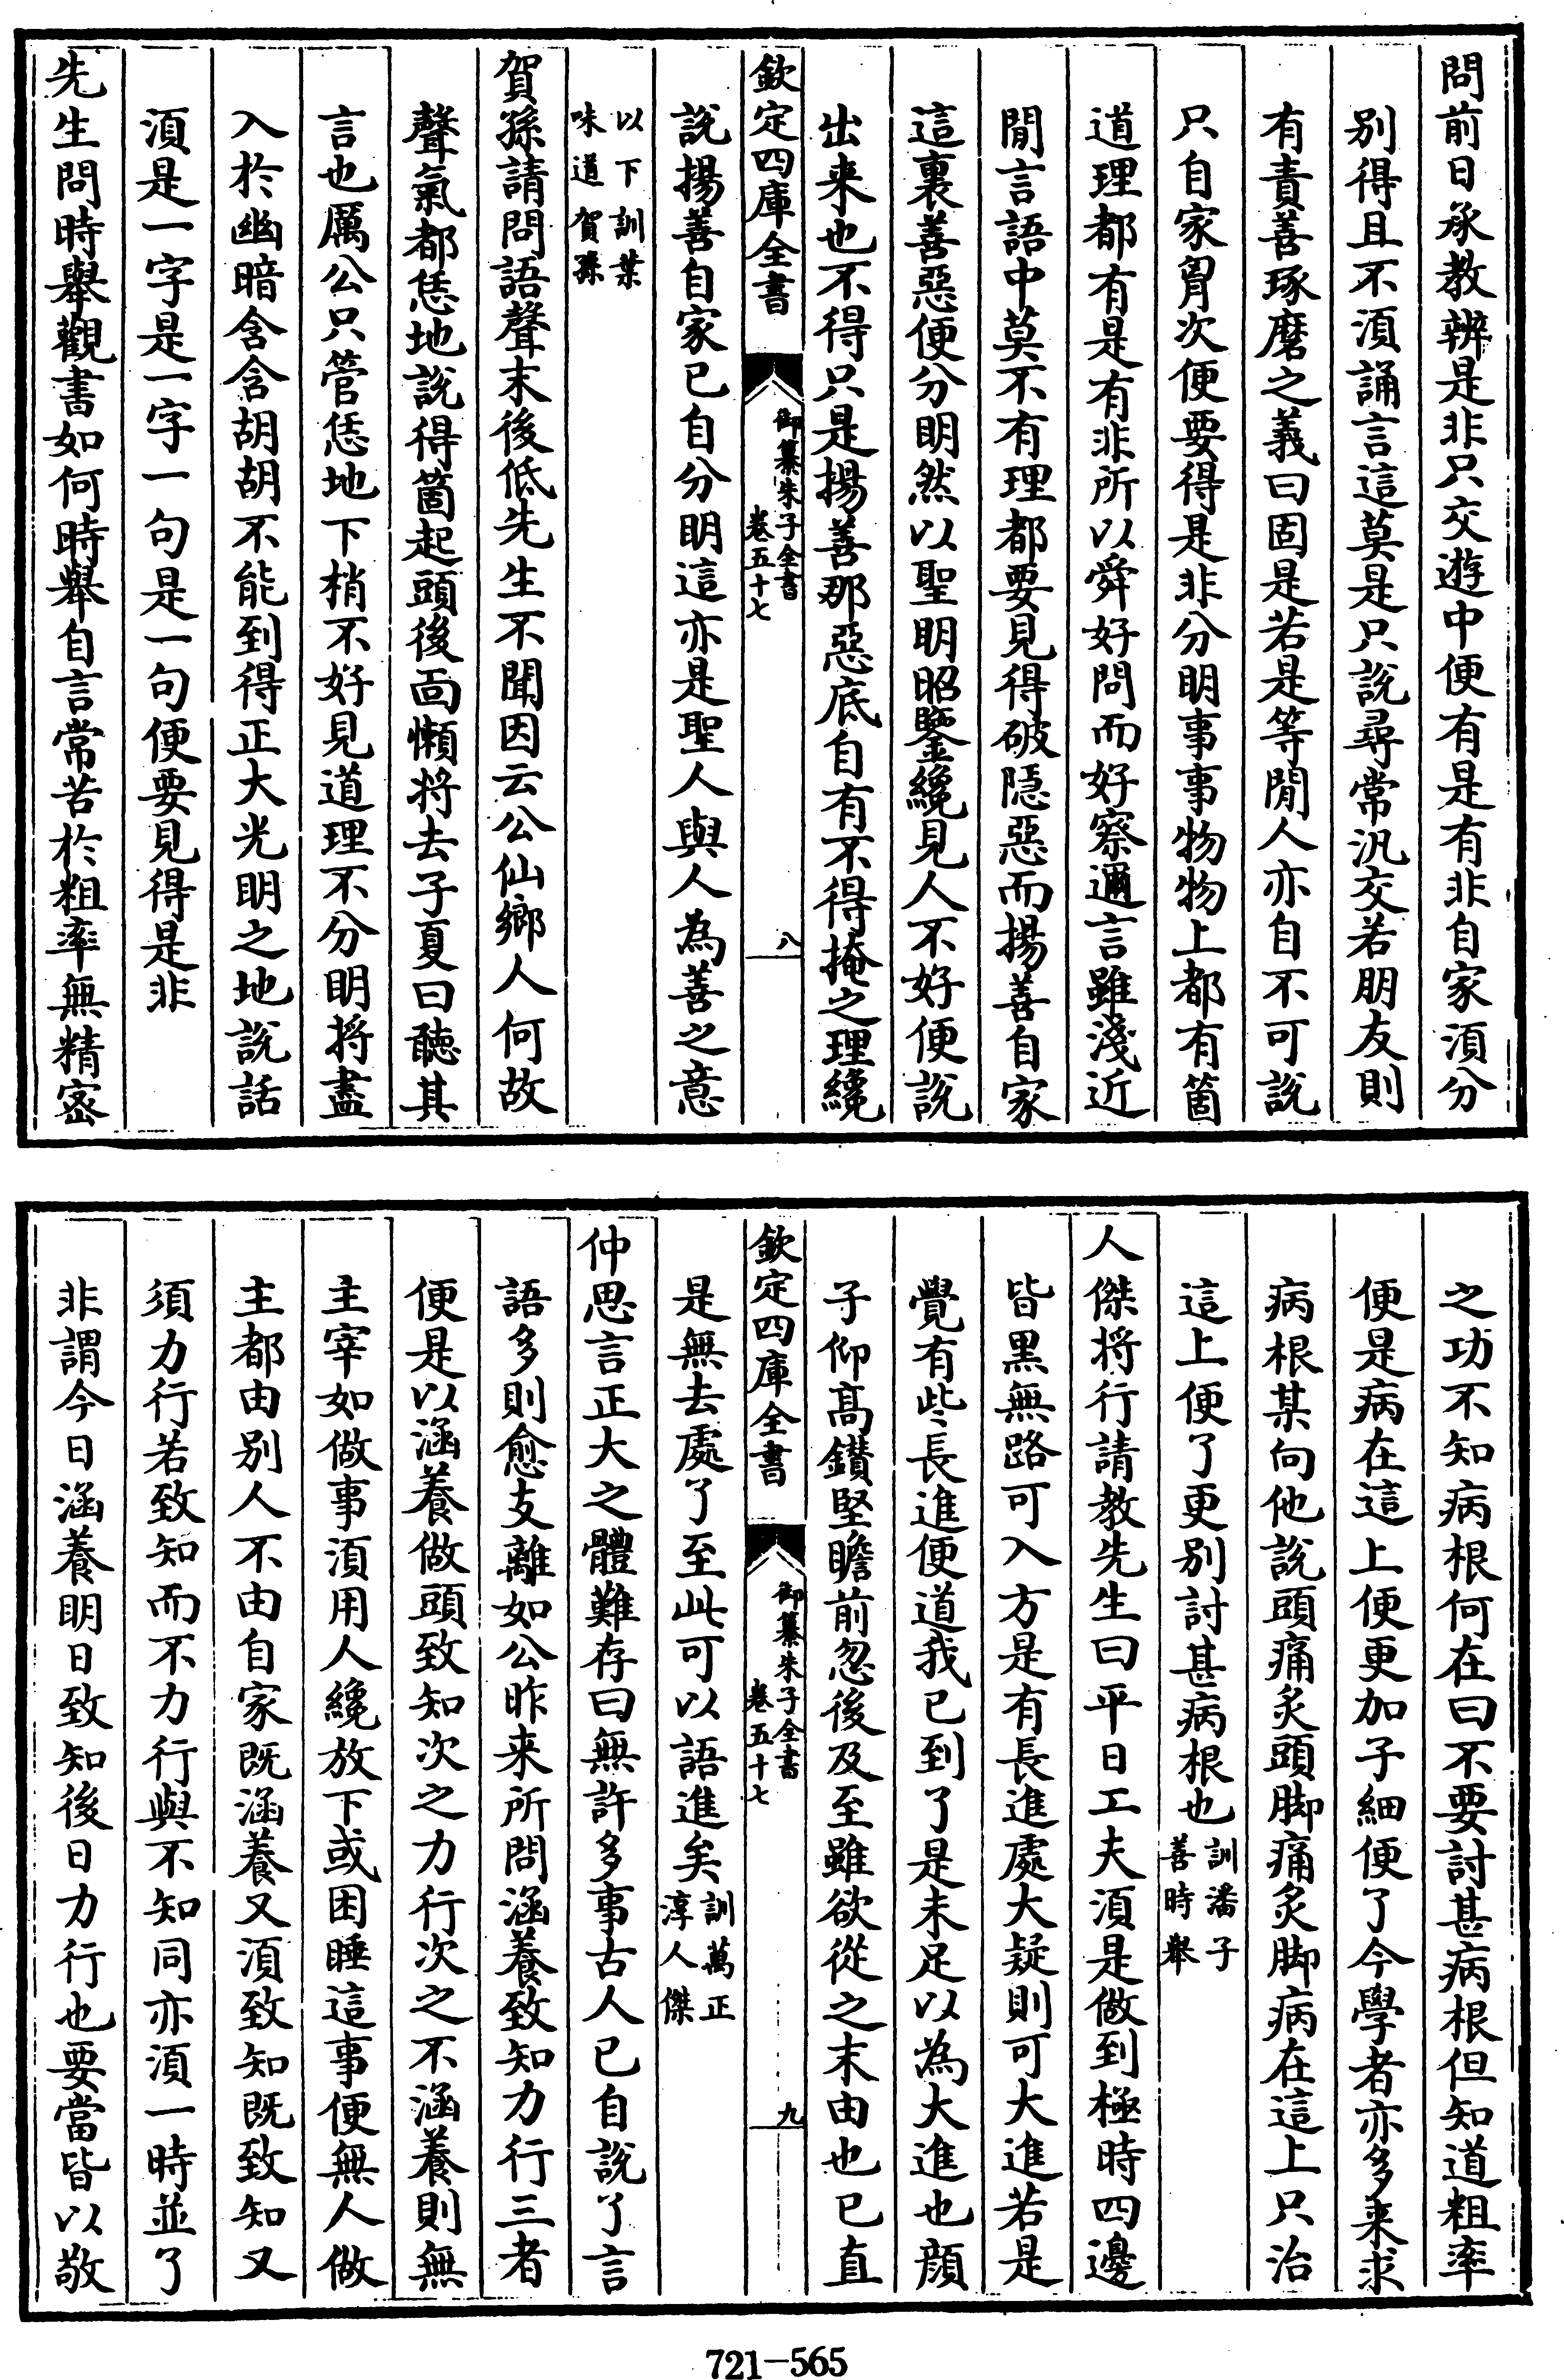 問前日承教辨是非只交遊中便有是有非自家湏分
别得且不湏誦言這莫是只說尋常汎交若朋友則
有責善琢磨之義曰固是若是等閒人亦自不可說
只自家胷次便要得是非分明事事物物上都有箇
道理都有是有非所以舜好問而好察邇言雖淺近
閒言語中莫不有理都要見得破隱惡而揚善自家
這裏善惡便分明然以聖明昭鑒纔見人不好便說
出来也不得只是揚善那惡底自有不得掩之理纔
欽定四庫全書
御纂朱子全書
卷五十七
八
說揚善自家已自分明這亦是聖人與人為善之意
以下訓葉
味道賀孫
賀孫請問語聲末後低先生不聞因云公仙鄉人何故
聲氣都恁地說得箇起頭後面懶將去子夏曰聽其
言也厲公只管恁地下梢不好見道理不分明將盡
入於幽暗含含胡胡不能到得正大光明之地說話
湏是一字是一字一句是一句便要見得是非
先生問時舉觀書如何時舉自言常苦於粗率無精密
之功不知病根何在曰不要討甚病根但知道粗率
便是病在這上便更加子細便了今學者亦多来求
病根某向他說頭痛灸頭脚痛灸脚病在這上只治
這上便了更别討甚病根也
訓潘子
善時舉
人傑將行請教先生曰平日工夫湏是做到極時四邊
皆黒無路可入方是有長進處大疑則可大進若是
覺有些長進便道我已到了是未足以為大進也顔
子仰高鑚堅瞻前忽後及至雖欲從之末由也已直
欽定四庫全書
御纂朱子全書
卷五十七
九
是無去處了至此可以語進矣
訓萬正
淳人傑
仲思言正大之體難存曰無許多事古人已自說了言
語多則愈支離如公昨来所問涵養致知力行三者
便是以涵養做頭致知次之力行次之不涵養則無
主宰如做事湏用人纔放下或困睡這事便無人做
主都由别人不由自家既涵養又湏致知既致知又
須力行若致知而不力行與不知同亦湏一時並了
非謂今日涵養明日致知後日力行也要當皆以敬
721-565